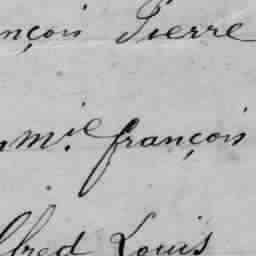 nçois Pierre
mie françois
lfred Louis